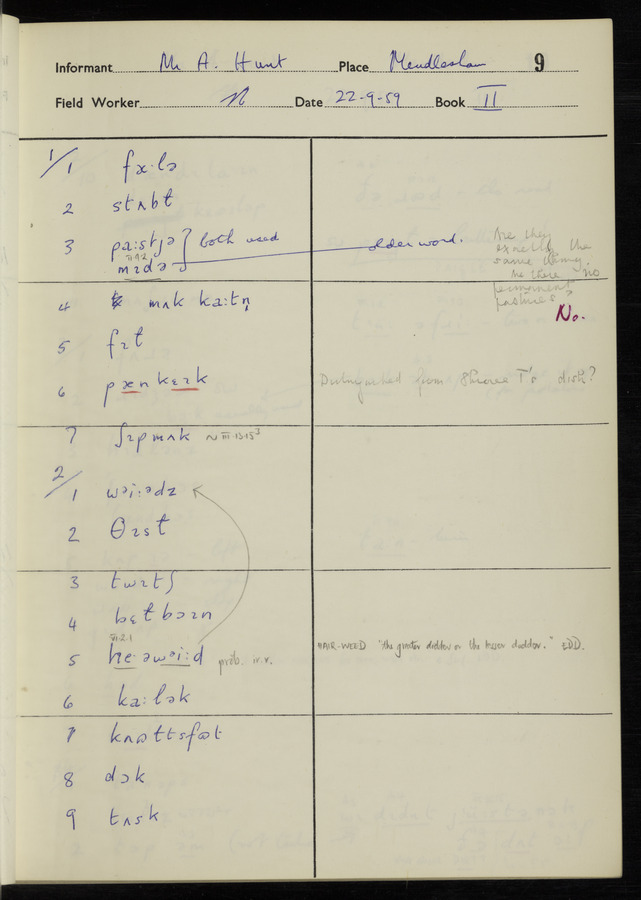 Informant Mr A. Hunt Place Mendlesham 9
Field Worker N Date 22-9-59 Book II
1/1 fæ·lə
2 stʌbt
3 pa:stjə } both used older word.
VI.9.2
mɪdə
Are they
exactly the
same thing.
Are there no
permanent
pastures?
No.
4 mʌk ka:tn̩
5 fɪt
6 pænkɛɪk Distinguished from Shrove T's dish?
7 ʃɪpmʌk ~ III.13.15³
2/1 wəi:ədz
2 θɪst
3 twɪtʃ
4 bɛt bəɪn
VI.2.1
5 hɛ·əwəi:d prob. i.r. HAIR-WEED "the greater dodder or the lesser dodder." EDD.
6 ka:lək
7 knɒttsfɒt
8 dɒk
9 tʌsk